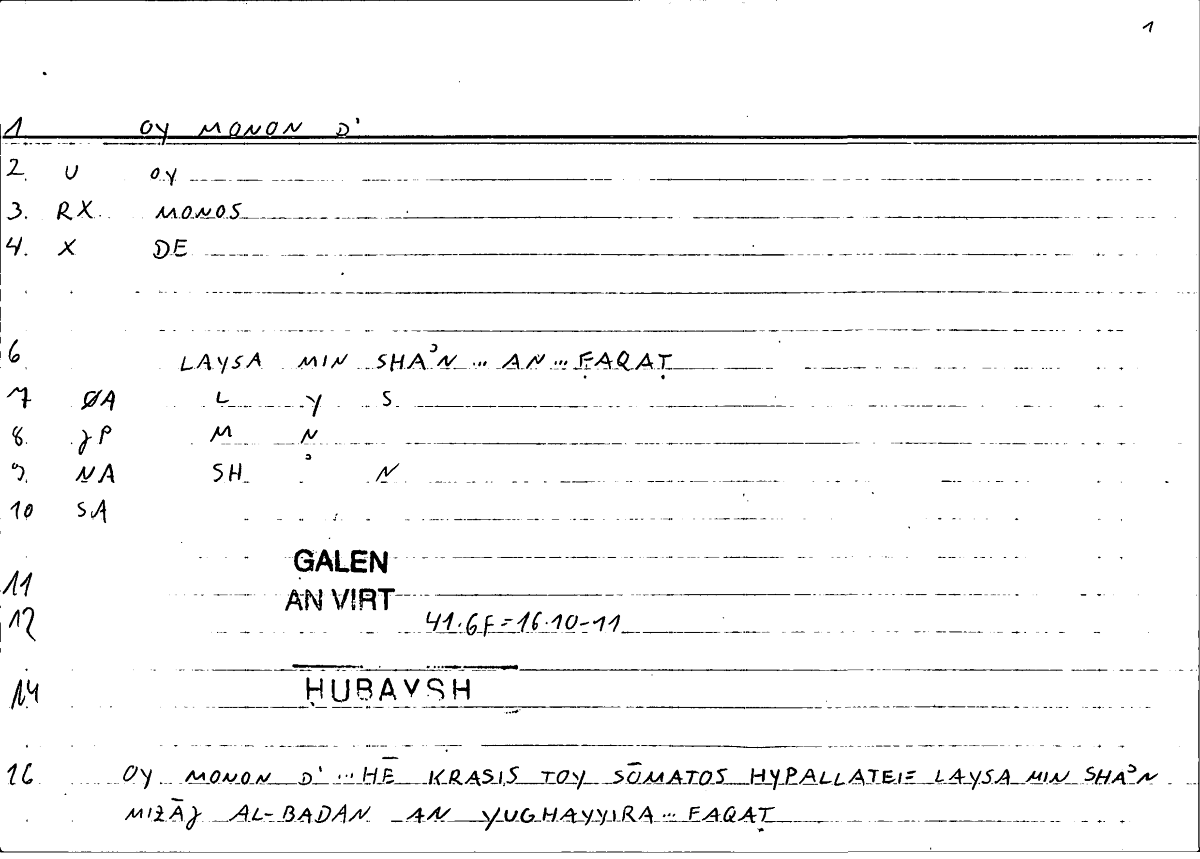 1
1 OY MONON D'
2. U OY
3. RX MONOS
4. X DE
6 LAYSA MIN SHAʾN ... AN ... FAQAṬ
7 ØA L Y S
8. JP M N
9. NA SH ʾ N
10 SA
GALEN
11
AN VIRT
12 41.6F=16.10-11
14 ḤUBAYSH
16 OY MONON D' ... HĒ KRASIS TOY SŌMATOS HYPALLATEI= LAYSA MIN SHAʾN
MIZĀJ AL-BADAN AN YUGHAYYIRA ... FAQAṬ